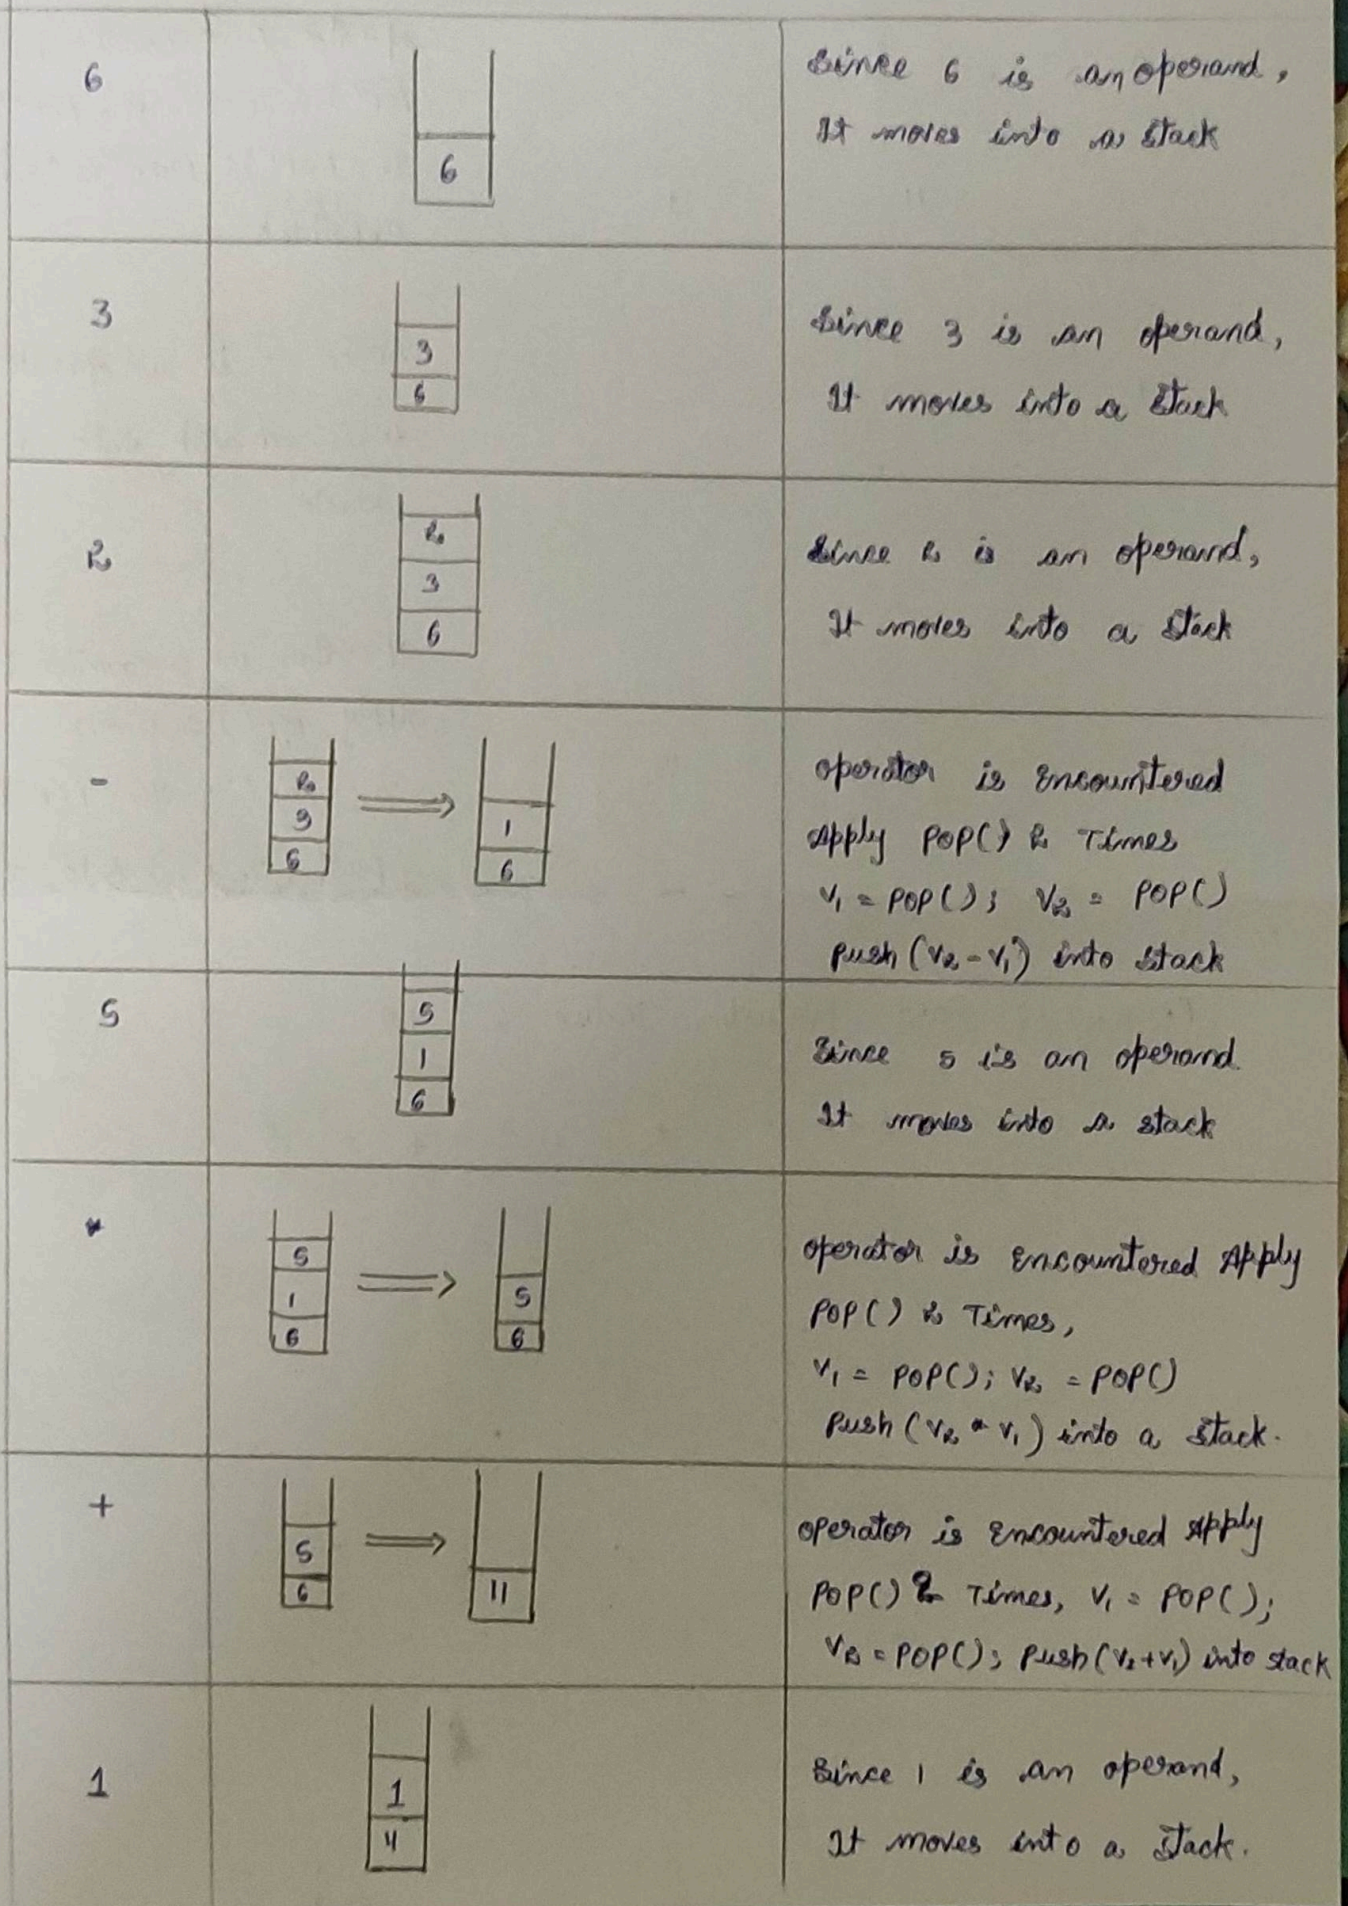 6
6
Since 6 is an operand,
It moves into a stack
3
3
6
Since 3 is an operand,
It moves into a stack
2
2
3
6
Since 2 is an operand,
It moves into a stack
-
2
3
6
1
6
operator is Encountered
Apply POP() 2 Times
V1 = POP(); V2 = POP()
Push (V2 - V1) into stack
5
5
1
6
Since 5 is an operand
It moves into a stack
*
5
1
6
5
6
operator is Encountered Apply
POP() 2 Times,
V1 = POP(); V2 = POP()
Push (V2 * V1) into a stack.
+
5
6
11
operator is Encountered Apply
POP() 2 Times, V1 = POP();
V2 = POP(); Push (V2+V1) into stack
1
1
11
Since 1 is an operand,
It moves into a stack.